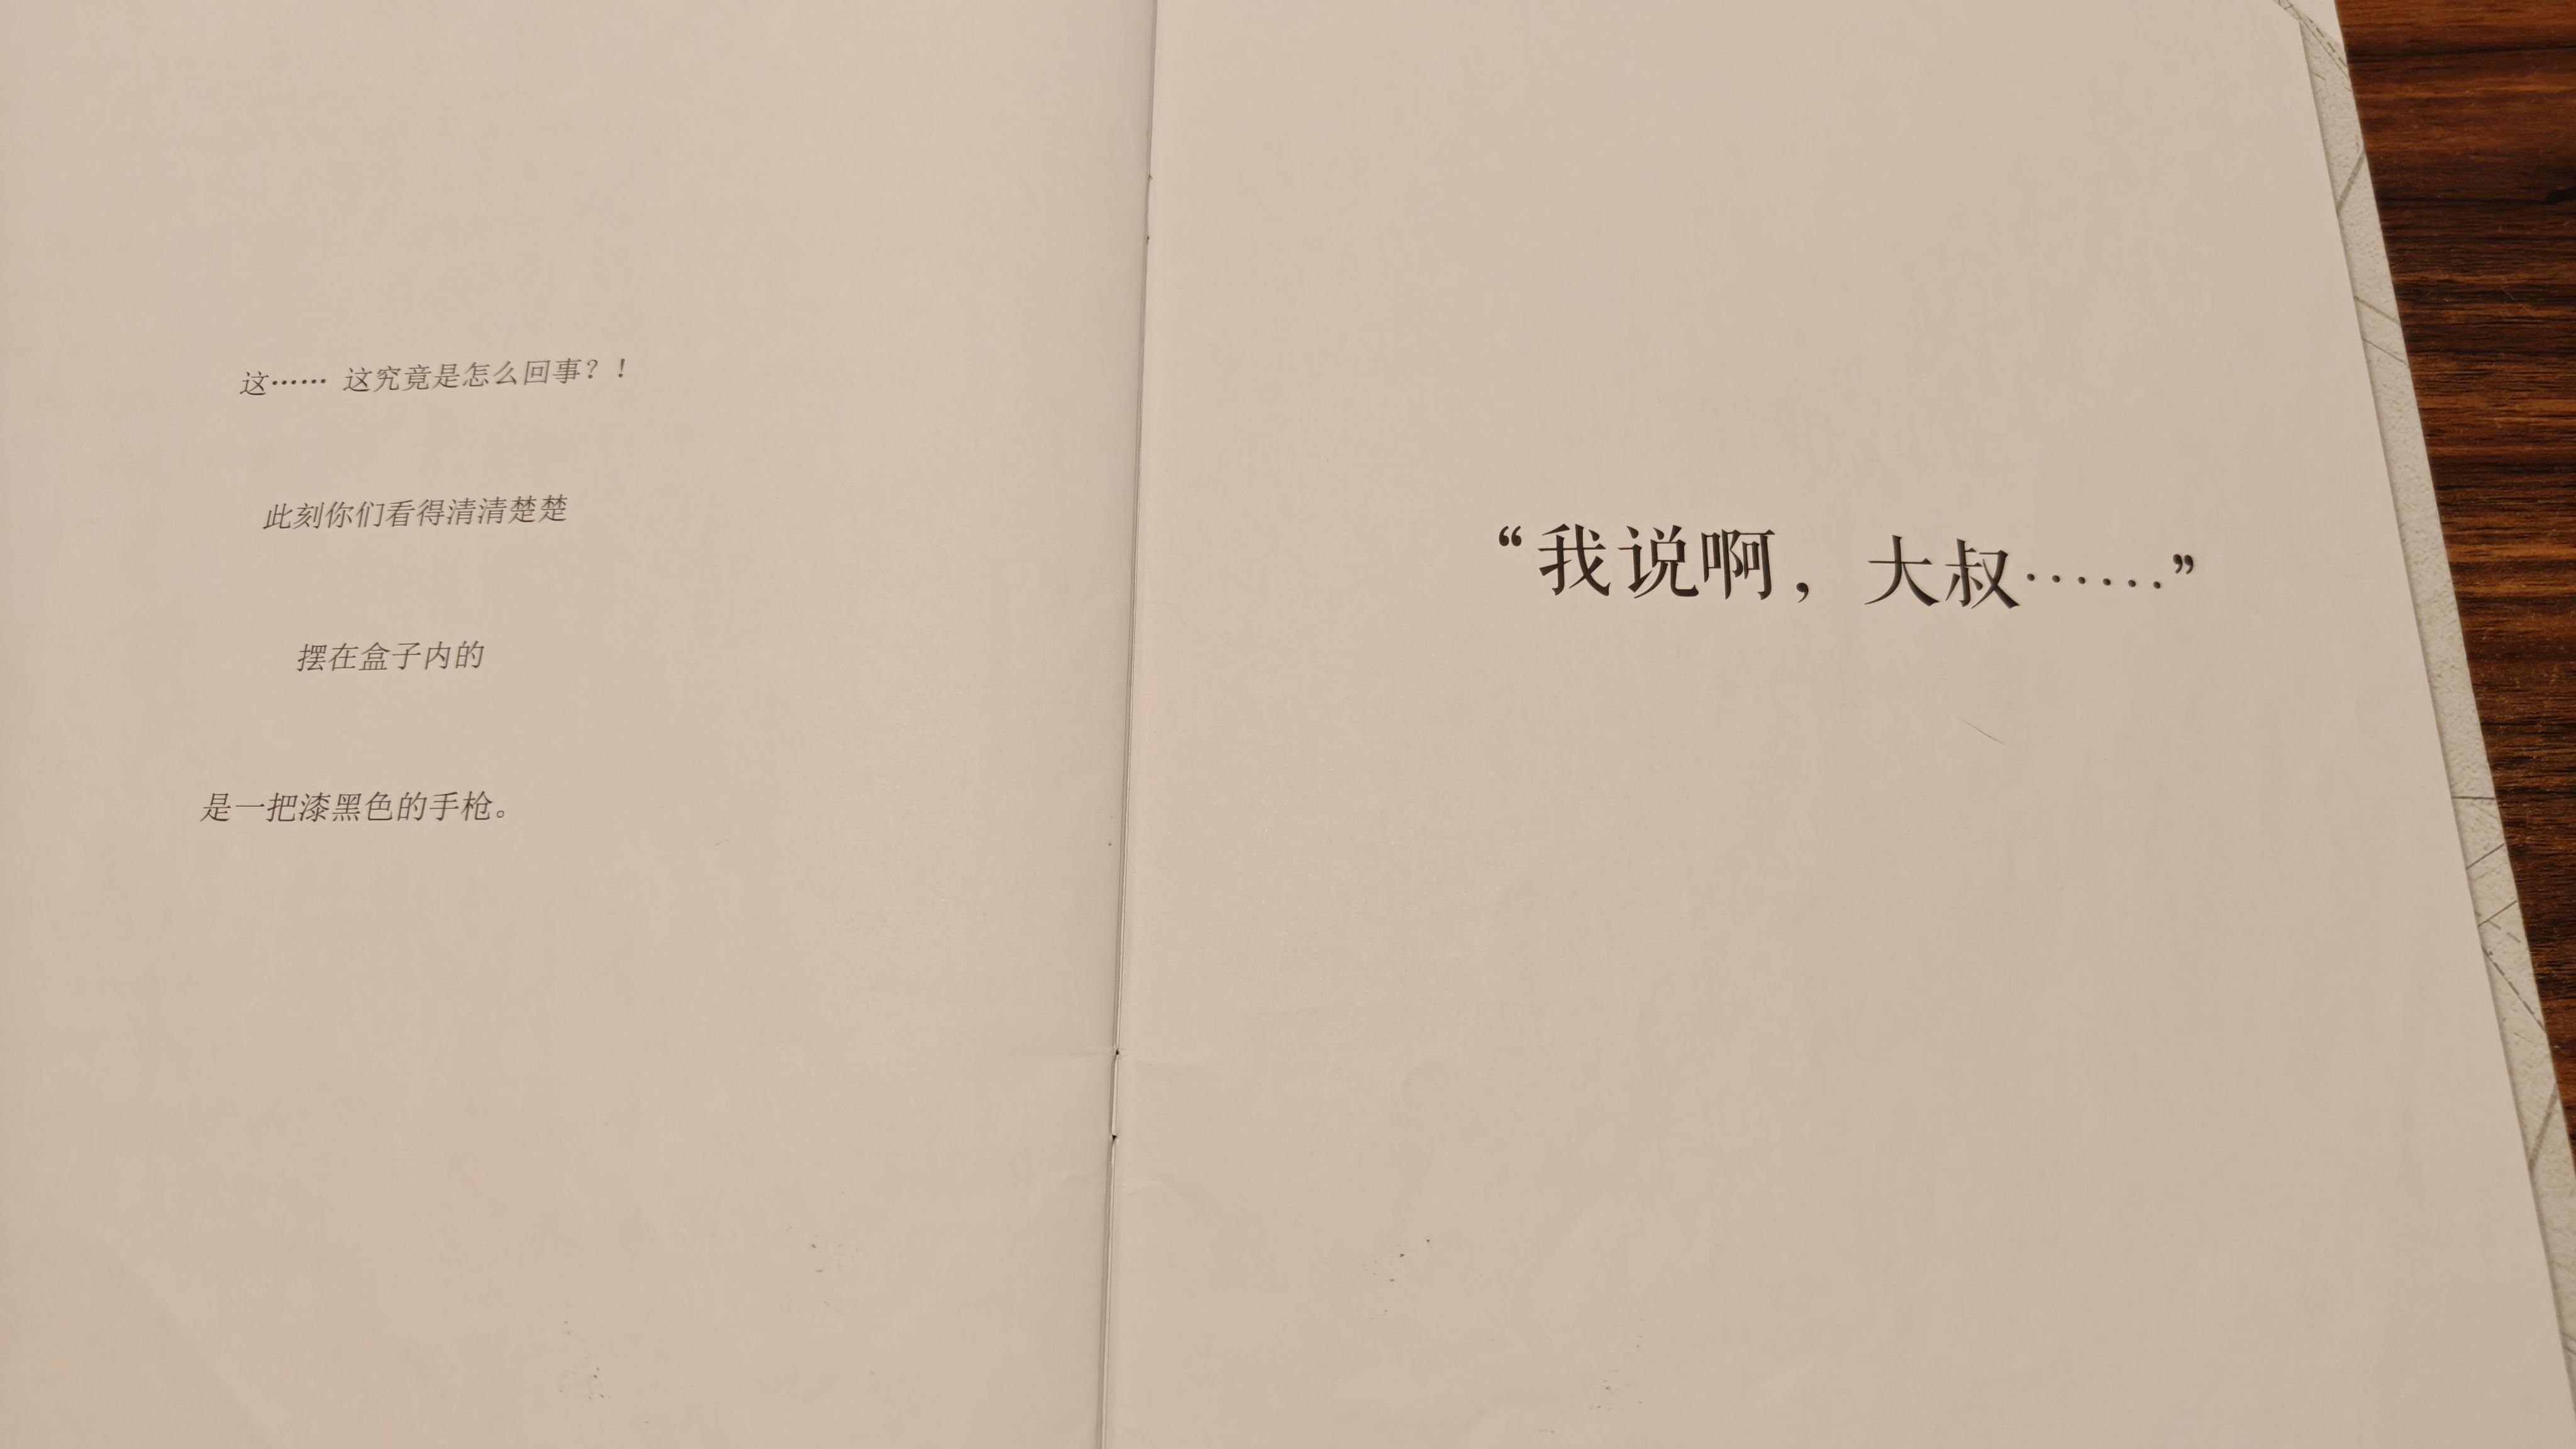 这…… 这究竟是怎么回事？！
此刻你们看得清清楚楚
摆在盒子内的
是一把漆黑色的手枪。
“我说啊，大叔……”